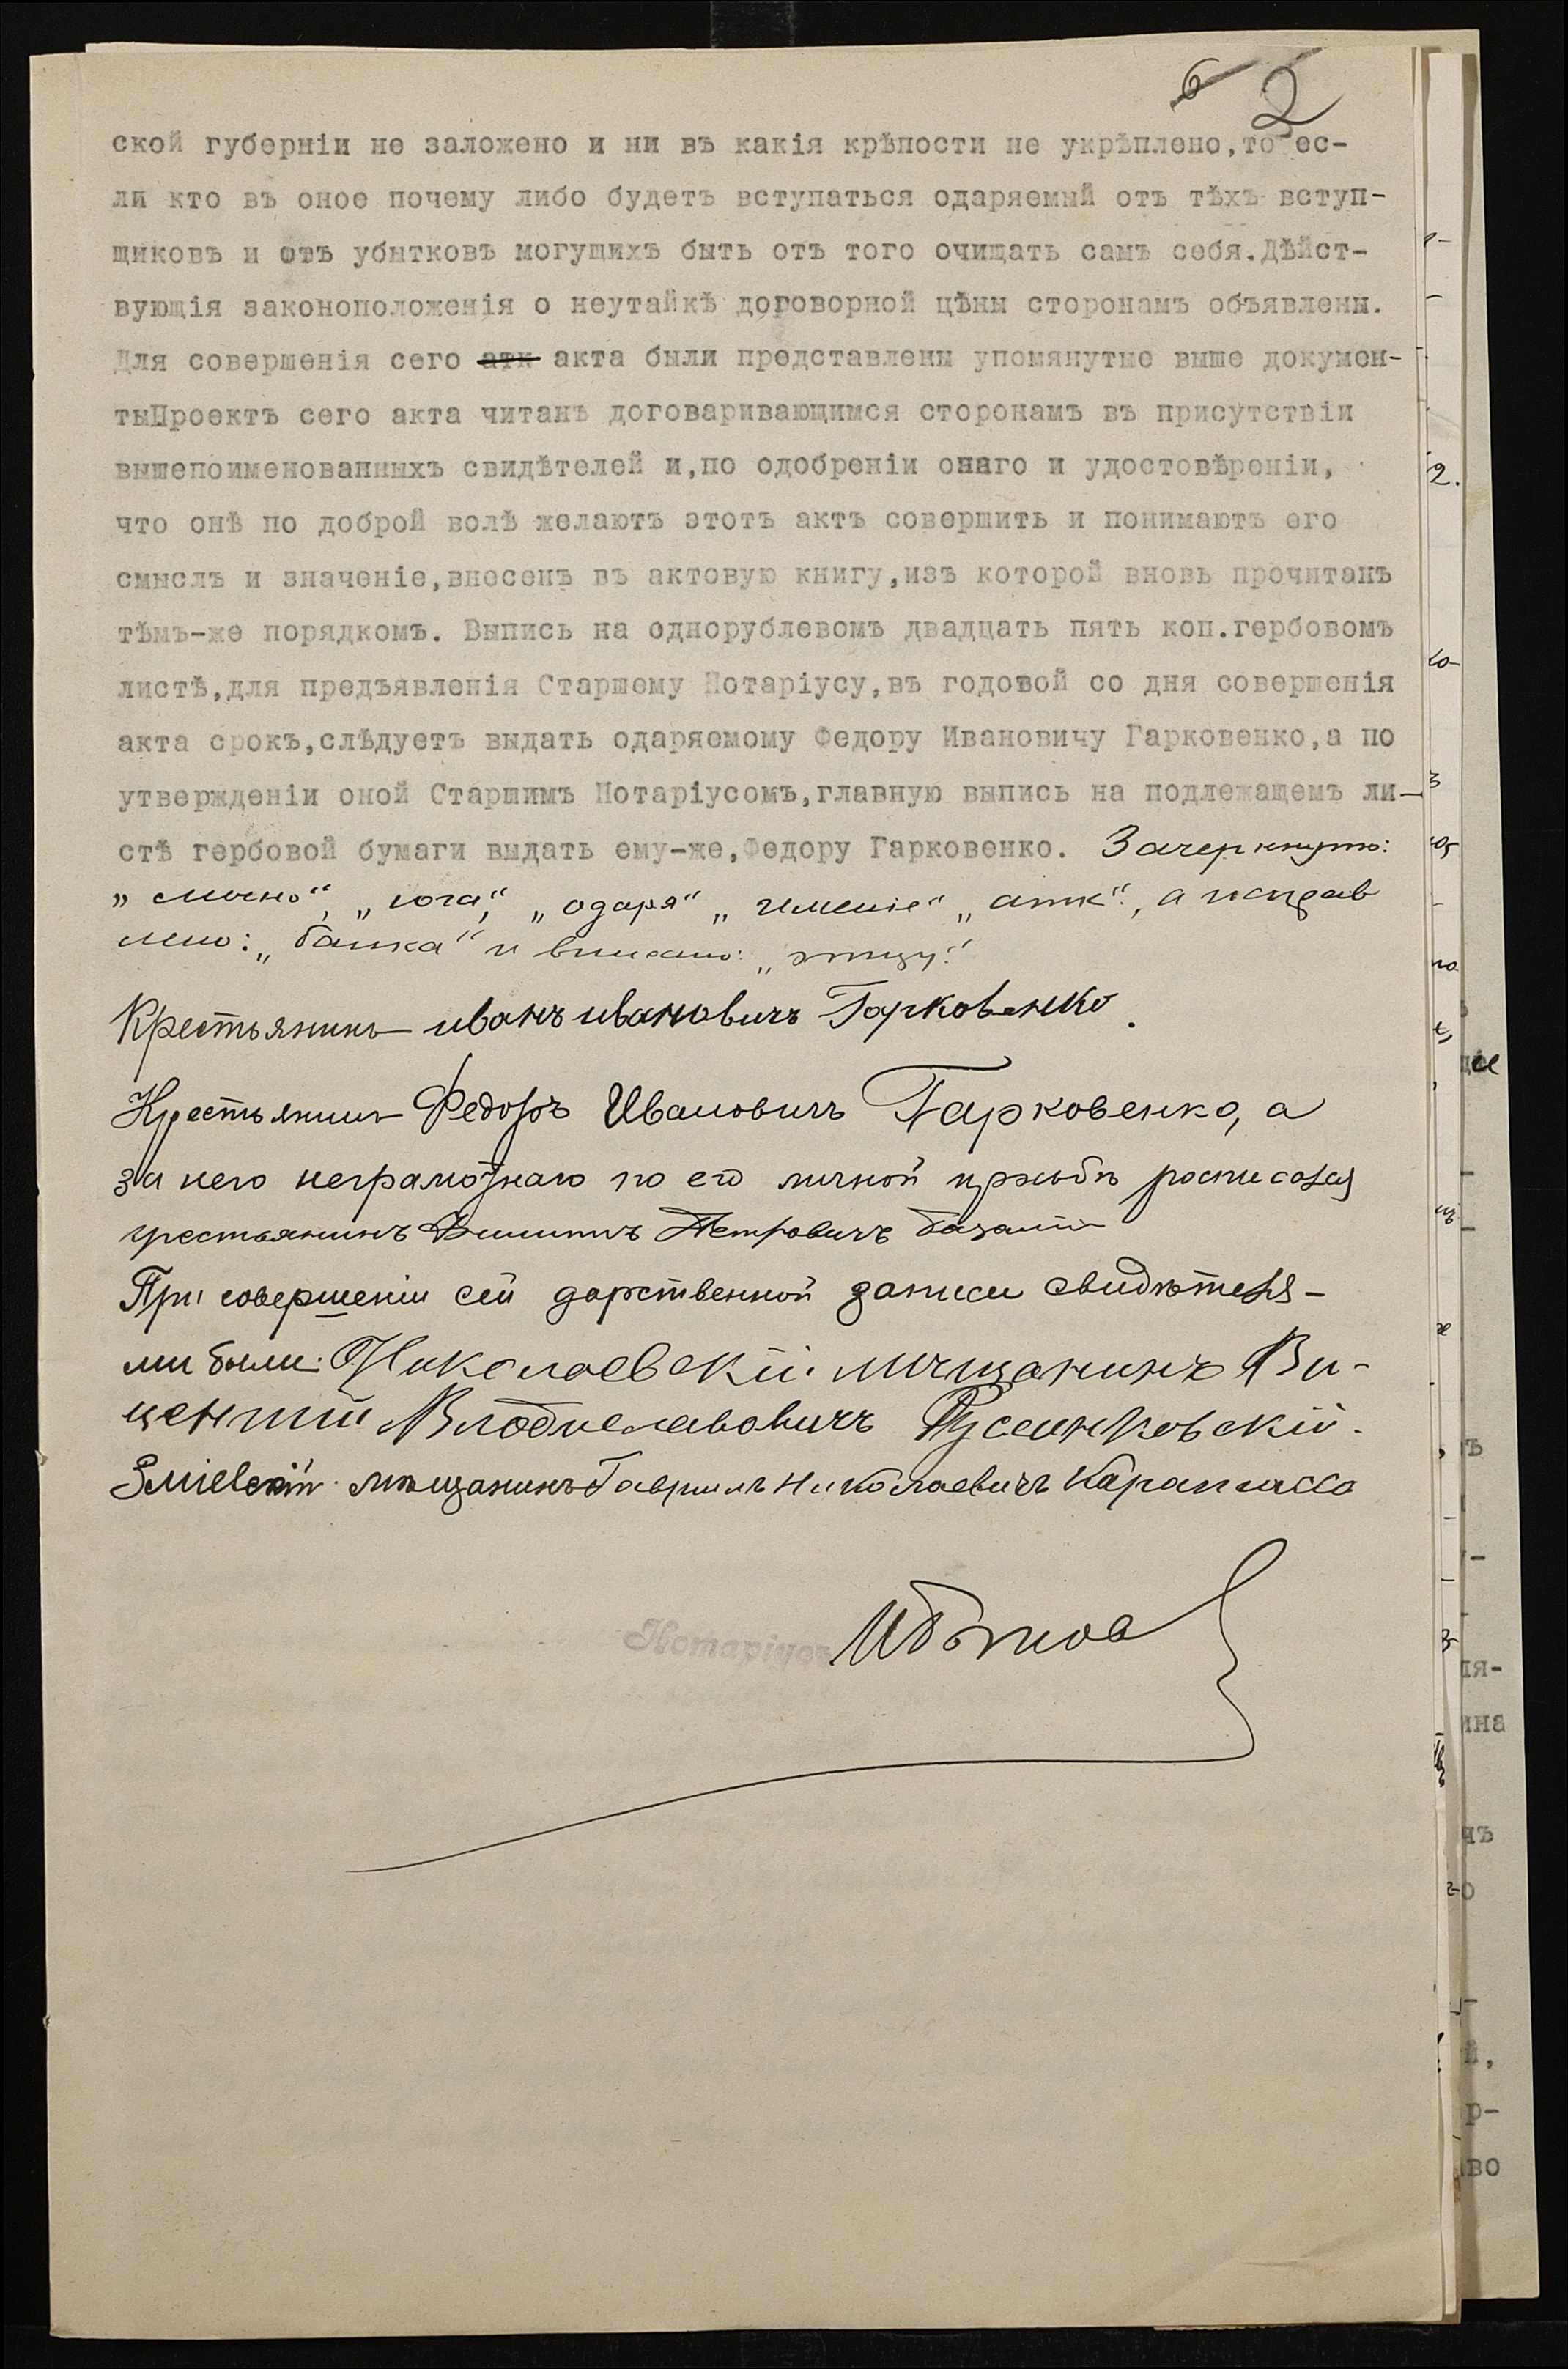 6 2
ской губерніи не заложено и ни въ какія крѣпости не укрѣплено,то ес-
ли кто въ оное почему либо будетъ вступаться одаряемый отъ тѣхъ вступ-
щиковъ и отъ убытковъ могущихъ быть отъ того очищать самъ себя.Дѣйст-
вующія законоположенія о неутайкѣ договорной цѣны сторонамъ объявлены.
Для совершенія сего атк акта были представлены упомянутые выше докумен-
тыПроектъ сего акта читанъ договаривающимся сторонамъ въ присутствіи
вышепоименованныхъ свидѣтелей и,по одобреніи онаго и удостовѣреніи,
что онѣ по доброй волѣ желаютъ этотъ актъ совершить и понимаютъ его
смыслъ и значеніе,внесенъ въ актовую книгу,изъ которой вновь прочитанъ
тѣмъ-же порядкомъ. Выпись на однорублевомъ двадцать пять коп.гербовомъ
листѣ,для предъявленія Старшему Нотаріусу,въ годовой со дня совершенія
акта срокъ,слѣдуетъ выдать одаряемому Федору Ивановичу Гарковенко,а по
утвержденіи оной Старшимъ Нотаріусомъ,главную выпись на подлежащемъ ли-
стѣ гербовой бумаги выдать ему-же,Федору Гарковенко. Зачеркнуто:
„юга", „одаря" „имѣніе" „атк", а исправ
лено: „банка" и вписано:
Крестьянинъ иванъ ивановичъ Гарковенко.
Крестьянинъ Федоръ Ивановичъ Гарковенко, а
за него неграмотнаго по его личной прозьбѣ росписался
крестьянинъ Филиппъ Петровичъ
При совершеніи сей дарственной записи свидѣтеля-
ми были: Николаевскій мѣщанинъ Ви-
центій Влодиславовичъ
Зміевскій мѣщанинъ Гавриилъ Николаевичъ
Нотаріусъ